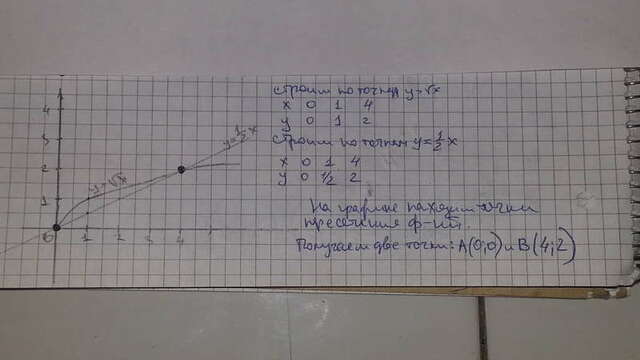 строим по точкам y=√x
x 0 1 4
y 0 1 2
строим по точкам y=1/2 x
x 0 1 4
y 0 1/2 2
На графике находим точки
пресечения ф-ий.
Получаем две точки: A(0;0) и B(4;2)
4
3
2
1
0 1 2 3 4
y=√x
y=1/2 x